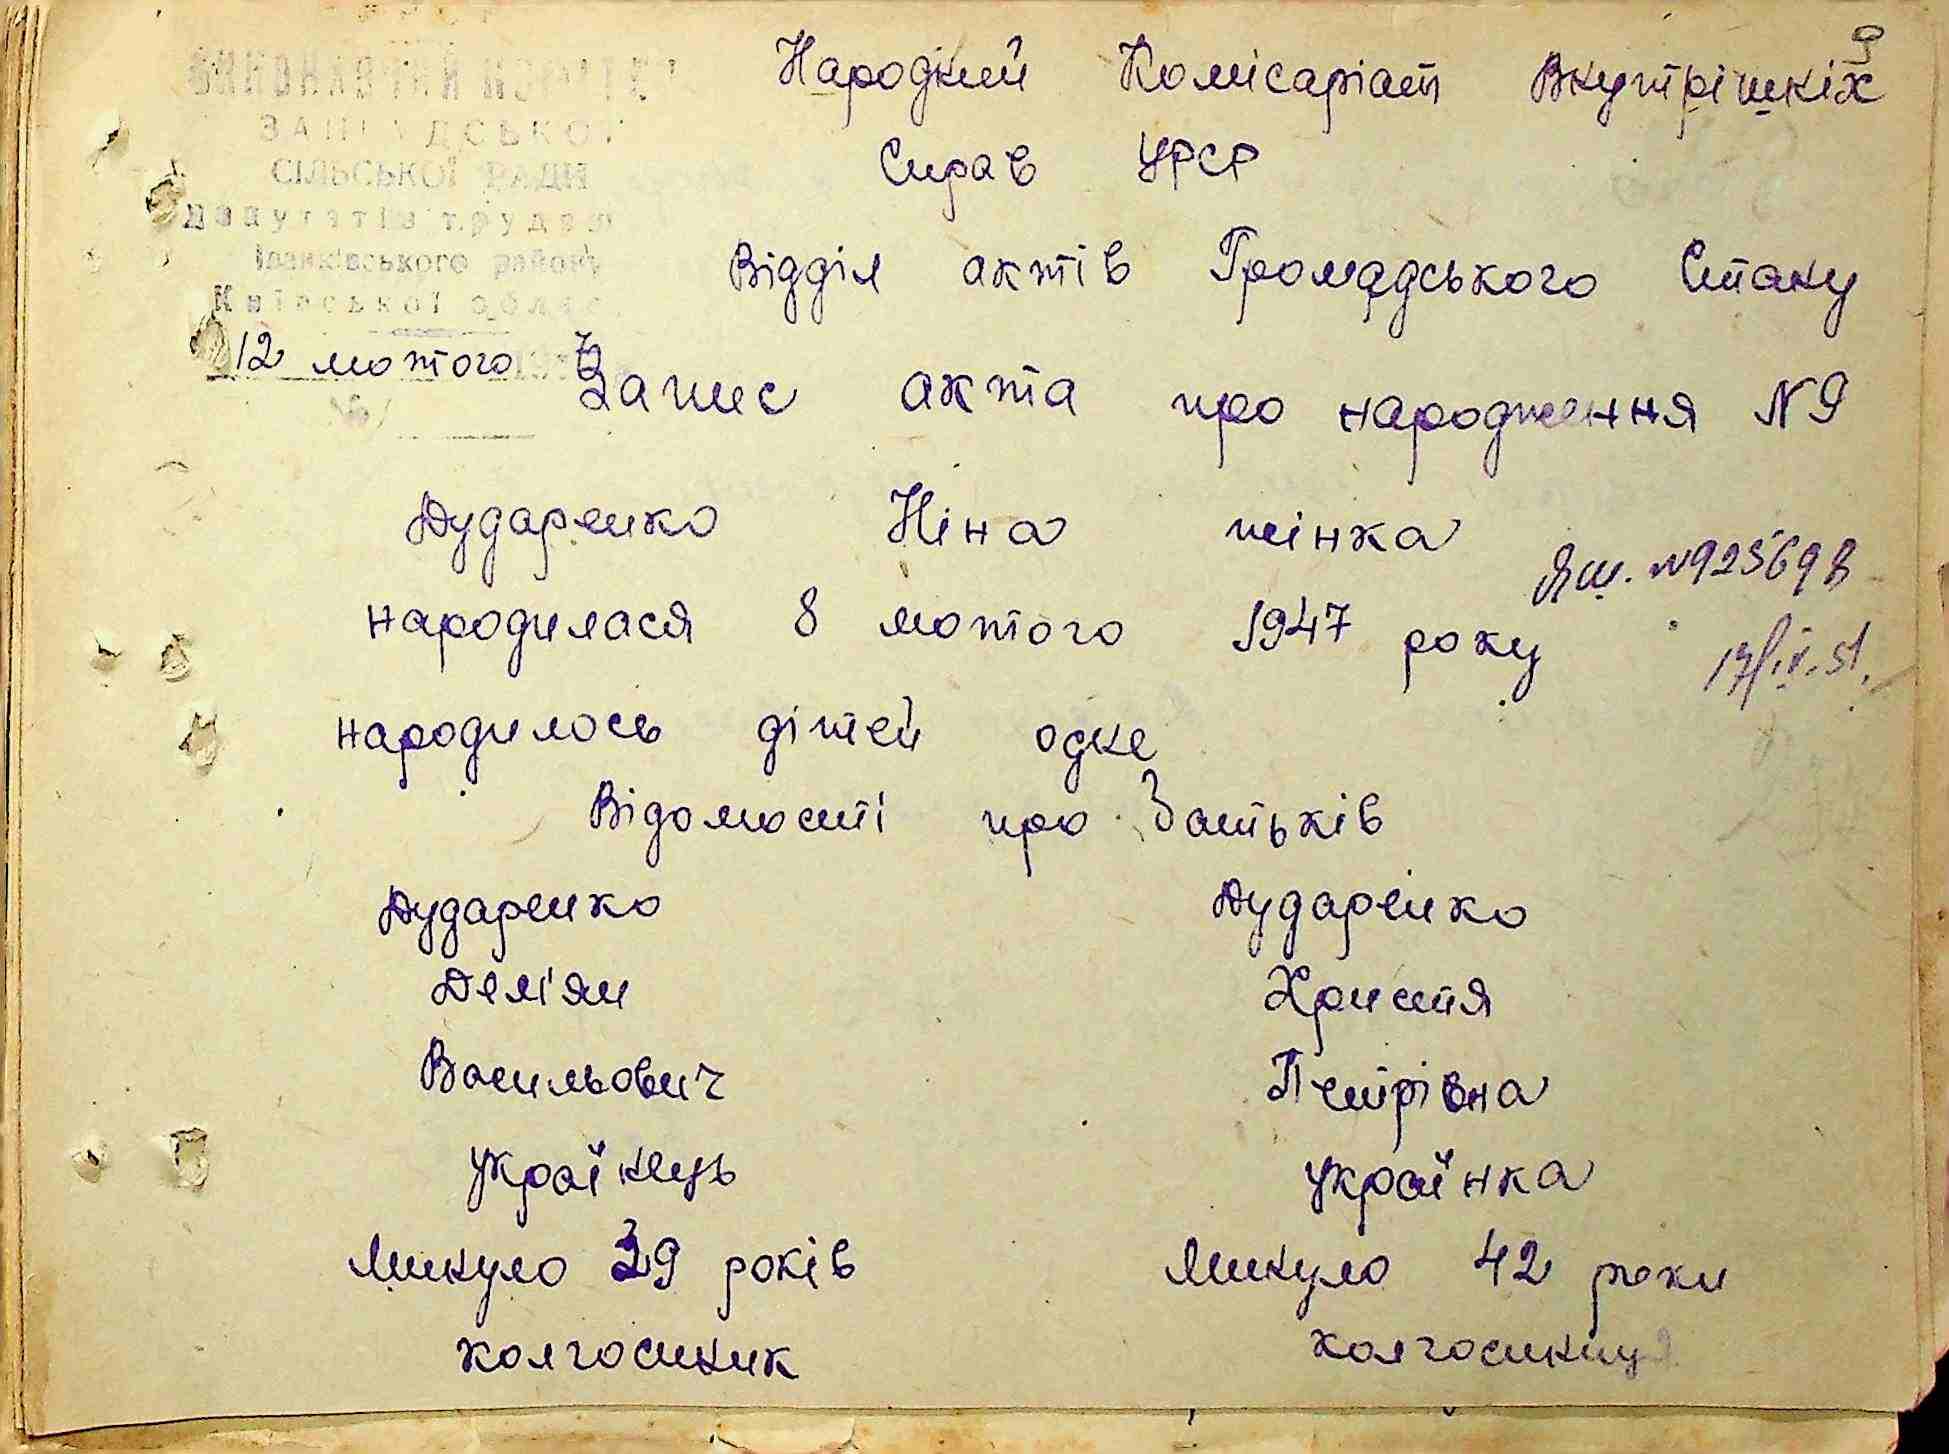 9
Народний Комісаріат Внутрішніх
Справ УРСР
ВИКОНАВЧИЙ КОМІТЕТ
СІЛЬСЬКОЇ РАДИ
Депутатів трудящ
Іванківського району
Київської облас
Відділ актів Громадського Стану
12 лютого
Запис акта про народження N 9
Дударенко Ніна жінка
Яш. N 925698
народилася 8 лютого 1947 року
17/IV.51.
народилось дітей одне
Відомості про Батьків
Дударенко Дударенко
Дем'ян Христя
Васильович Петрівна
українець українка
Минуло 39 років Минуло 42 роки
колгоспник колгоспниця